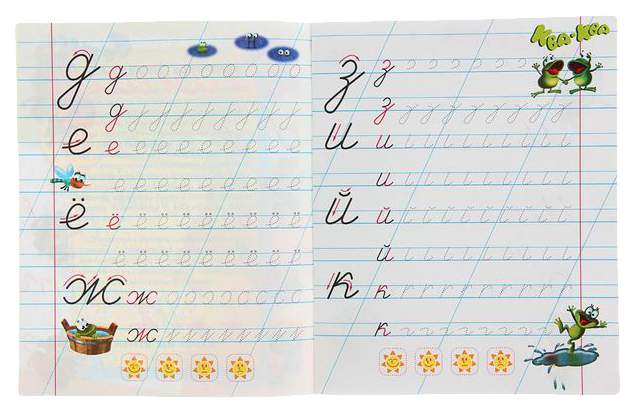 д д
д
е е е е е е е е е е
е е е е е е е е е
ё ё ё ё ё ё ё ё ё ё
ё ё ё ё ё ё ё ё ё
ж ж
ж
Ква-Ква
з з
з
и и
и
й й
й
к к
к